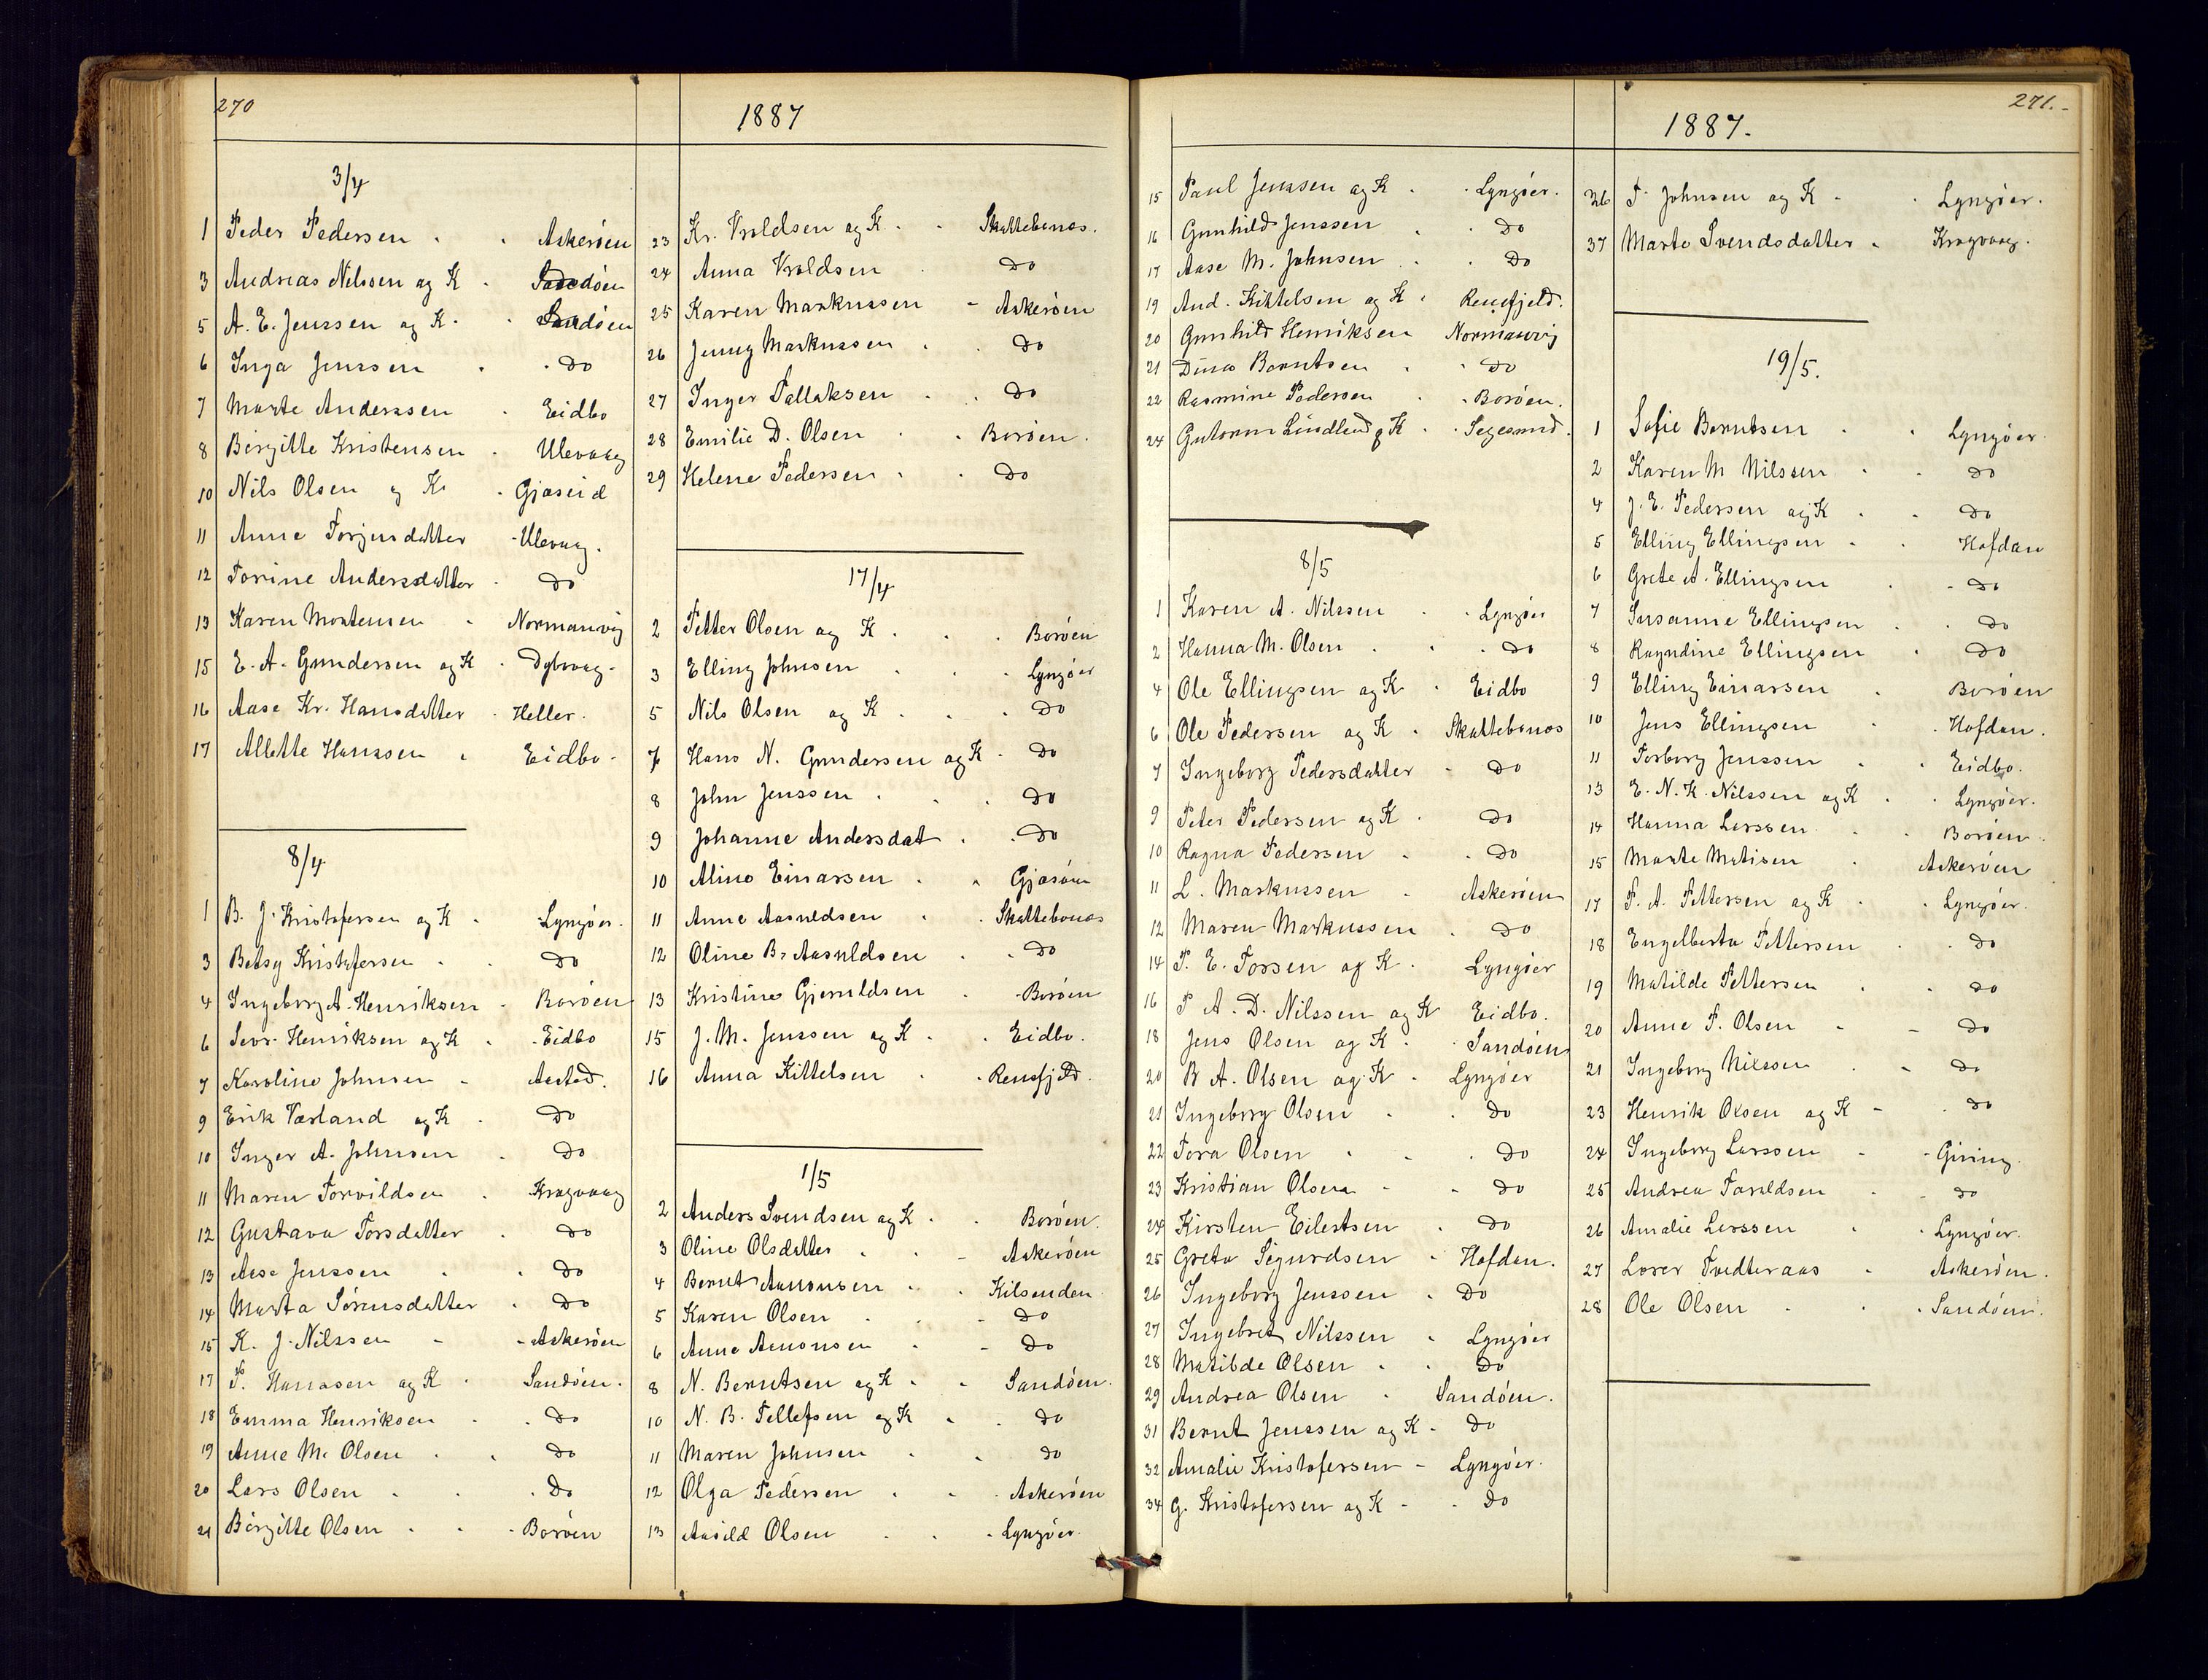 270
1887
3/4
1 Peder Pedersen Askerøen
3 Andreas Nilssen og K Sandøen
5 A. E. Jenssen og K. Sandøen
6 Inga Jenssen do
7 Marte Anderssen Eidbo
8 Birgitte Kristensen Ulevaag
10 Nils Olsen og K Gjøseid
11 Anne Torjusdatter Ulevag.
12 Torine Andersdatter do
13 Karen Mortensen Normanvig
15 E. A. Gundersen og K Dybvag.
16 Aase Kr. Hansdatter Heller.
17 Allette Hanssen Eidbo.
8/4
1 B. J. Kristofersen og K Lyngøer.
3 Betsy Kristofersen do
4 Ingeborg A. Henriksen Borøen
6 Sevr. Henriksen og K Eidbo
7 Karoline Johnsen Aasted.
9 Erik Værland og K do
10 Inger A. Johnsen do
11 Maren Torvildsen Kragvaag
12 Gustava Torsdatter do
13 Aase Jenssen do
14 Marta Sørensdatter do
15 K. J. Nilssen Askerøen
17 P. Hanssen og K Sandøen.
18 Emma Henriksen do
19 Anne M. Olsen do
20 Lars Olsen do
21 Birgitte Olsen Borøen
23 Kr. Vroldsen og K Skattebonæs.
24 Anna Vroldsen do
25 Karen Markussen Askerøen
26 Jenny Markussen do
27 Inger Tallaksen do
28 Emilie D. Olsen Borøen.
29 Helene Pedersen do
17/4
2 Petter Olsen og K. Borøen
3 Elling Johnsen Lyngøer
5 Nils Olsen og K. do
7 Hans N. Gundersen og K do
8 John Jenssen do
9 Johanne Andersdat do
10 Aline Einarssen
11 Anne Aasuldsen Skattebonæs
12 Oline B. Aasuldsen do
13 Kristine Gjeruldsen Borøen
15 J. M. Jenssen og K Eidbo.
16 Anna Kittelsen Rensfjeld.
1/5
2 Anders Svendsen og K Borøen.
3 Oline Olsdatter Askerøen
4 Bernt Aanonsen Kilsunden
5 Karen Olsen do
6 Anne Amonsen do
8 N. Berntsen og K Sandøen.
10 N. B. Tellefsen og K do
11 Maren Johnsen do
12 Olga Pedersen Askerøen
13 Aasild Olsen Lyngøer.
271.-
1887.
15 Paul Jenssen og K Lyngøer.
16 Gunhild Jenssen do
17 Aase M. Johnsen do
19 And. Kittelsen og K Rensfjeld.
20 Gunhild Henriksen Normanvig
21 Dina Berntsen do
22 Rasmine Pedersen Borøen.
24 Gutorm Lindland og K
8/5
1 Karen A. Nilssen Lyngøer
2 Hanna M. Olsen do
4 Ole Ellingsen og K Eidbo
6 Ole Pedersen og K Skattebonæs
7 Ingeborg Pedersdatter do
9 Peter Pedersen og K do
10 Ragna Pedersen do
11 L. Markussen Askerøen
12 Maren Markussen do
14 P. E. Torsen og K Lyngøer
16 P A. D. Nilssen og K Eidbo.
18 Jens Olsen og K Sandøen
20 B A. Olsen og K Lyngøer
21 Ingeborg Olsen do
22 Tora Olsen do
23 Kristian Olsen do
24 Kirsten Eilertsen do
25 Greta Sigurdsen Hafdan.
26 Ingeborg Jenssen do
27 Ingebret Nilssen Lyngøer
28 Matilde Olsen do
29 Andrea Olsen Sandøen.
31 Bernt Jenssen og K do
32 Amalie Kristofersen Lyngøer.
34 G. Kristofersen og K do
36 T. Johnsen og K Lyngøer.
37 Marte Svendsdatter Kragvaag.
19/5.
1 Sofie Berntsen Lyngøer.
2 Karen M Nilssen do
4 J. E. Pedersen og K do
5 Elling Ellingsen Hafdan
6 Grete A. Ellingsen do
7 Susanne Ellingsen do
8 Ragndine Ellingsen do
9 Elling Einarsen Borøen
10 Jens Ellingsen Hafdan.
11 Torborg Jenssen Eidbo.
13 E. N. K. Nilssen og K Lyngøer.
14 Hanna Larssen Borøen.
15 Marte Matisen Askerøen
17 P. A. Pettersen og K Lyngøer.
18 Engelberta Pettersen do
19 Matilde Pettersen do
20 Anne P. Olsen do
21 Ingeborg Nilssen do
23 Henrik Olsen og K do
24 Ingeborg Larssen Giving.
25 Andrea Taraldsen do
26 Amalie Larssen Lyngøer.
27 Lorer Tvedteraas Askerøen.
28 Ole Olsen Sandøen.